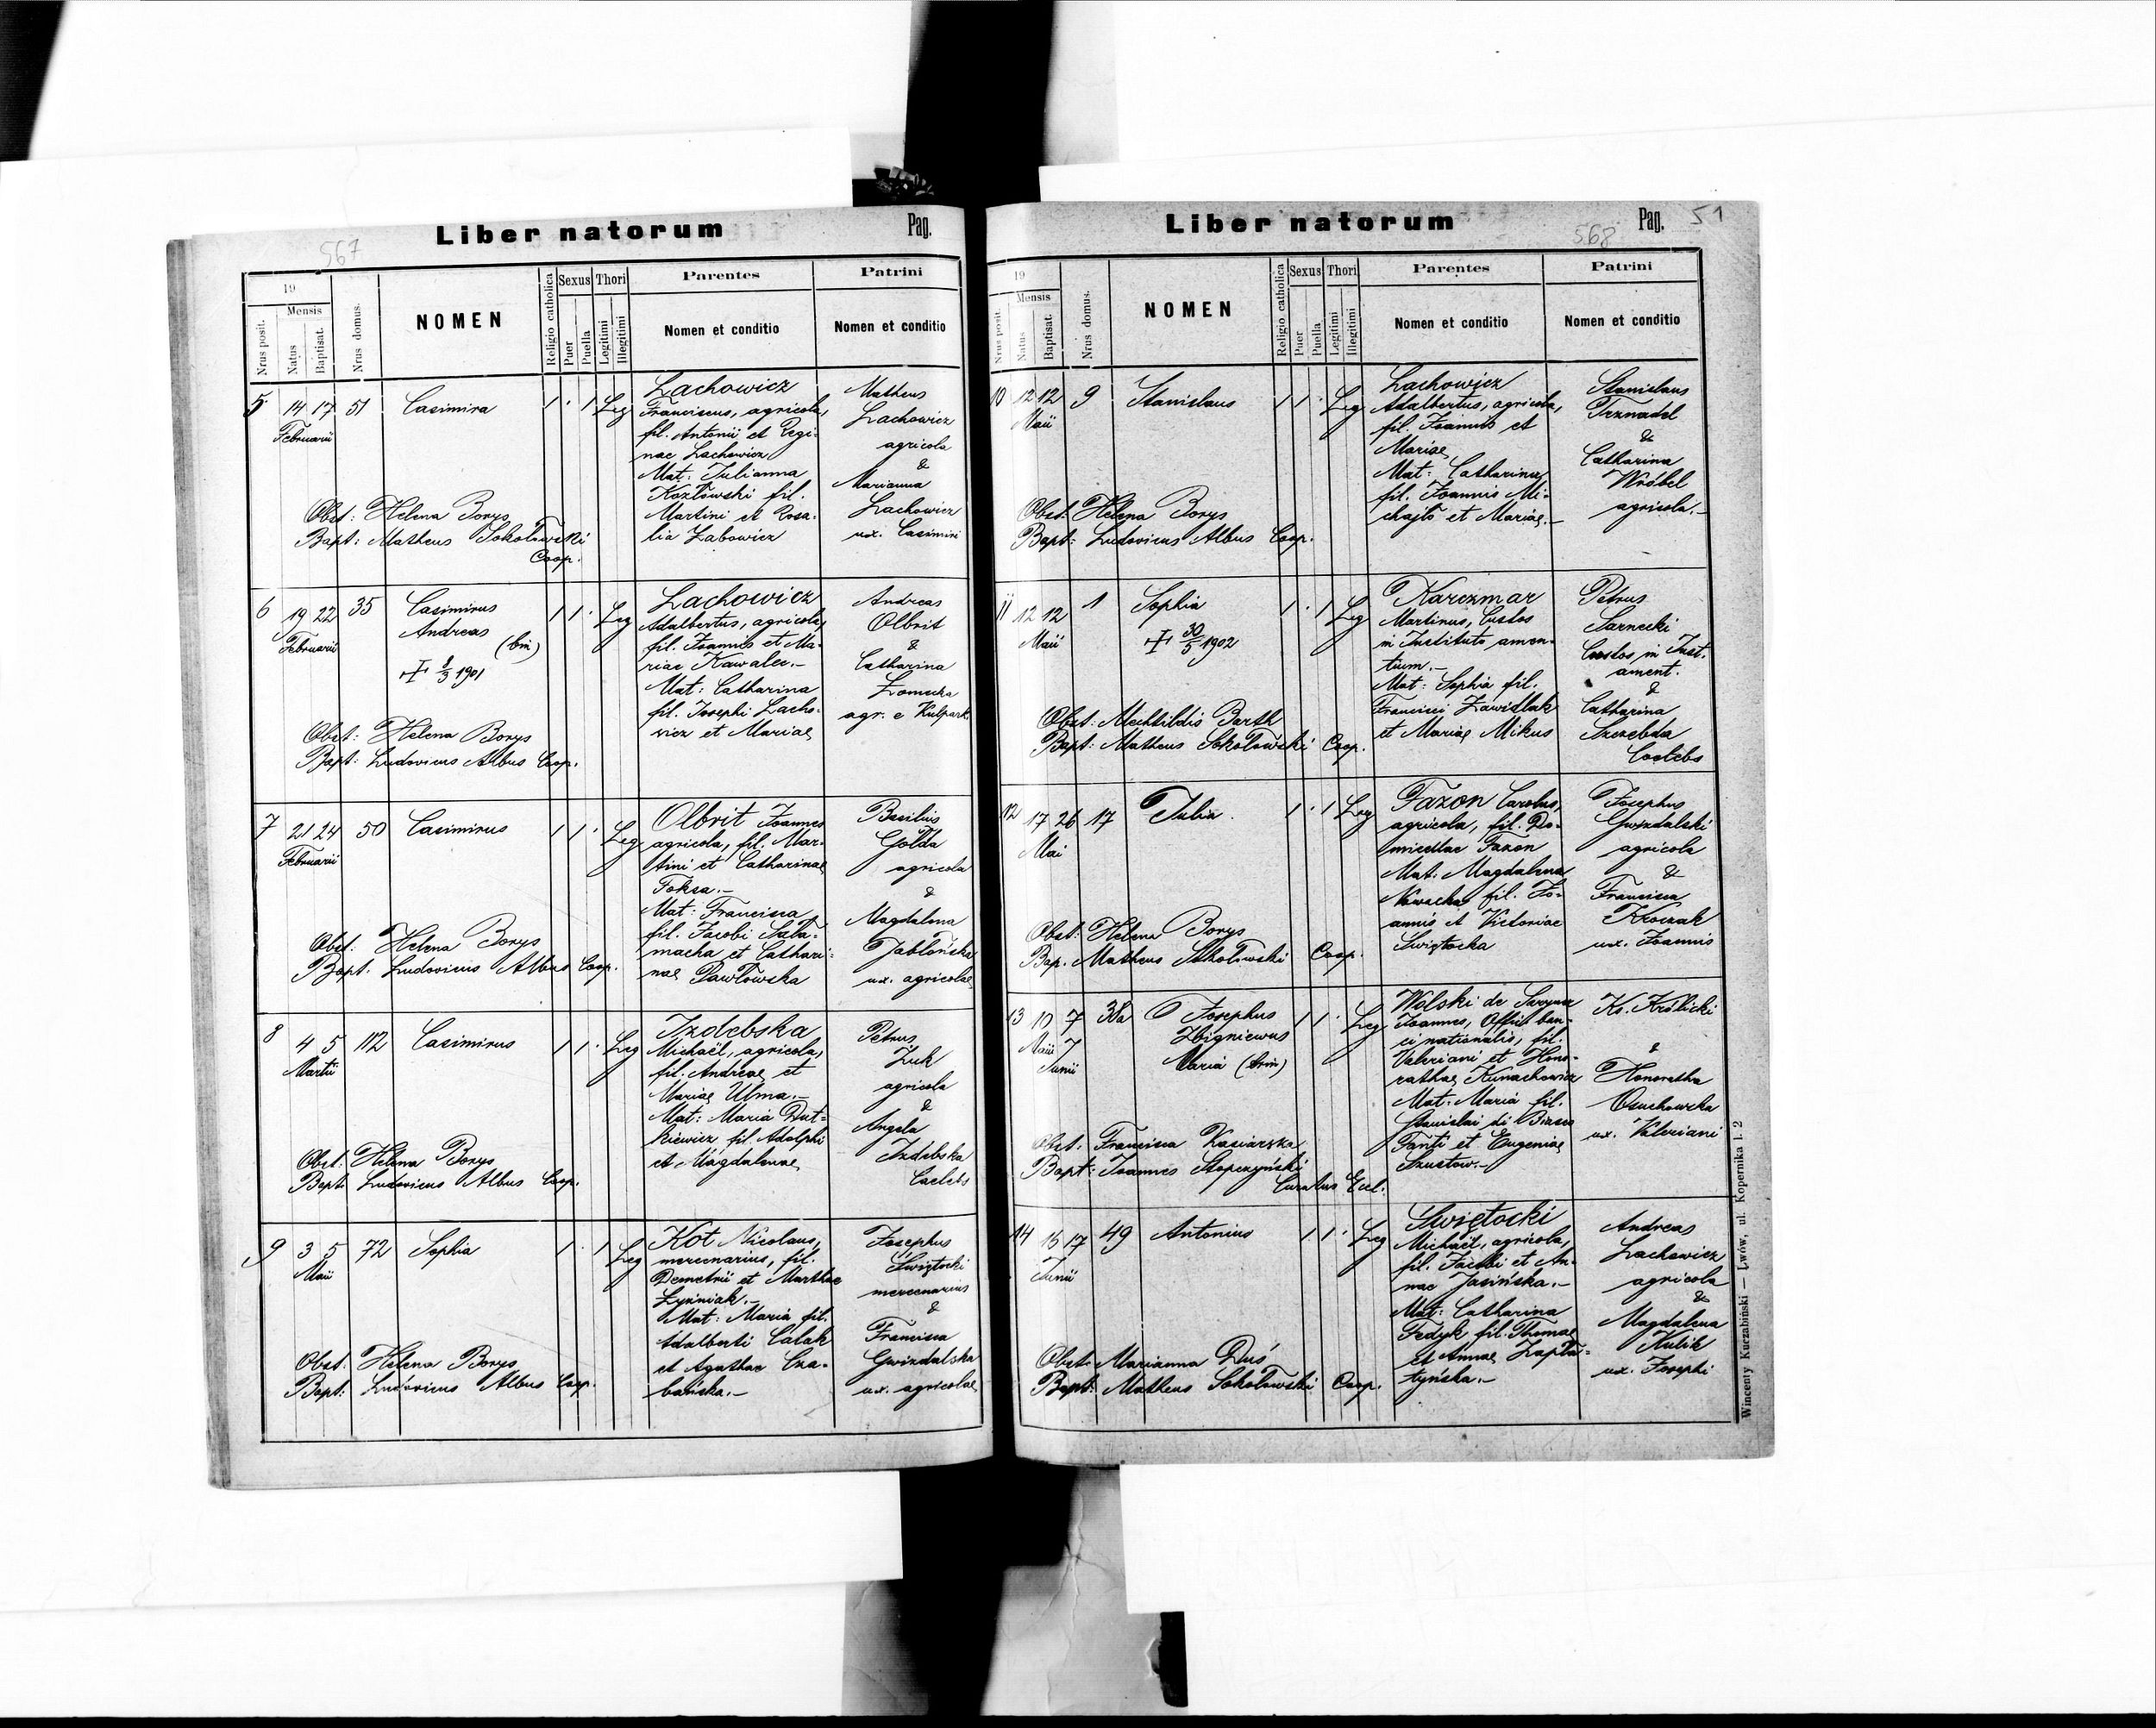 567
Liber natorum Pag.
19
Mensis
Nrus posit.
Natus
Baptisat.
Nrus domus.
NOMEN
Religio catholica
Sexus
Puer
Puella
Thori
Legitimi
Illegitimi
Parentes
Nomen et conditio
Patrini
Nomen et conditio
5 14 17 51 Casimira 1 · 1 Leg
Februarii
Lachowicz
Franciscus, agricola,
fil. Antonii et Regi-
nae Lachowicz
Mat: Julianna
Kozłowski fil.
Martini et Rosa-
lia Zabowicz
Matheus
Lachowicz
agricola
&
Marianna
Lachowicz
ux. Casimiri
Obst: Helena Borys
Bapt: Matheus Sokołowski
Coop.
6 19 22 35 Casimirus 1 1 · Leg
Februarii
Andreas
(bin)
+ 1/3 1901
Lachowicz
Adalbertus, agricola,
fil. Joannis et Ma-
riae Kawalec.-
Mat: Catharina
fil. Josephi Lacho-
wicz et Mariae
Andreas
Olbrit
&
Catharina
Łomicka
agr. e Kulpark.
Obst: Helena Borys
Bapt: Ludovicus Albus Coop.
7 21 24 50 Casimirus 1 1 · Leg
Februarii
Olbrit Joannes
agricola, fil. Mar-
tini et Catharinae
Foksa.-
Mat: Francisca
fil. Jacobi Sała-
macha et Cathari-
nae Pawłowska
Basilius
Gołda
agricola
&
Magdalena
Jabłońska
ux. agricolae
Obst: Helena Borys
Bapt. Ludovicus Albus Coop.
8 4 5 112 Casimirus 1 1 · Leg
Martii
Izdebska
Michaël, agricola,
fil. Andreae et
Mariae Ulma.-
Mat: Maria Dut-
kiewicz fil. Adolphi
et Magdalenae
Petrus
Żuk
agricola
&
Angela
Izdebska
Caelebs
Obst: Helena Borys
Bapt Ludovicus Albus Coop.
9 3 5 72 Sophia 1 · 1 Leg
Maii
Kot Nicolaus,
mercenarius, fil.
Demetrii et Marthae
Łyźniak.-
Mat: Maria fil.
Adalberti Calak
et Agathae Cza-
bańska.-
Josephus
Świętocki
mercenarius
&
Francisca
Gwizdalska
ux. agricolae
Obst: Helena Borys
Bapt: Ludovicus Albus Coop.
568
51
Liber natorum Pag.
19
Mensis
Nrus posit.
Natus
Baptisat.
Nrus domus.
NOMEN
Religio catholica
Sexus
Puer
Puella
Thori
Legitimi
Illegitimi
Parentes
Nomen et conditio
Patrini
Nomen et conditio
10 12 12 9 Stanislaus 1 1 · Leg
Maii
Lachowicz
Adalbertus, agricola,
fil. Joannis et
Mariae
Mat: Catharina
fil. Joannis Mi-
chajło et Mariae.-
Stanislaus
Trznadel
&
Catharina
Wróbel
agricola.-
Obst: Helena Borys
Bapt: Ludovicus Albus Coop.
11 12 12 1 Sophia 1 · 1 Leg
Maii
+ 30/5 1902
Karczmar
Martinus, Custos
in Instituto amen-
tium.-
Mat: Sophia fil.
Francisci Zawidlak
et Mariae Mikus
Petrus
Sarnecki
Custos in Inst.
ament.
&
Catharina
Szczebda
Coelebs
Obst: Mechtildis Barth
Bapt: Matheus Sokołowski Coop.
12 17 26 17 Julia 1 · 1 Leg
Mai
Fazon Carolus,
agricola, fil. Do-
micellae Fazon
Mat: Magdalena
fil. Jo-
annis et Victoriae
Świętocka
Josephus
Gwizdalski
agricola
&
Francisca
Kroczak
ux. Joannis
Obst: Helena Borys
Bap. Matheus Sokołowski Coop.
13 10 7 38a Josephus 1 1 · Leg
Maii 7 Junii
Zbigniewus
Maria (trin)
Wolski de
Joannes, Offici ban-
ci nationalis, fil.
Valeriani et Hono-
rathae Kunachowicz
Mat. Maria fil.
Stanislai di
Fanti et Eugeniae
Szustow.-
Ks. Królicki
&
Honoratha
Osuchowska
ux. Valeriani
Obst. Francisca Kasiarska
Bapt: Joannes Stopczyński
Curatus Eccl.
14 15 17 49 Antonius 1 1 · Leg
Junii
Świętocki
Michaël, agricola,
fil. Jacobi et An-
nae Jasińska.-
Mat: Catharina
Fedyk fil. Thomae
et Annae Zapła-
tyńska.-
Andreas
Lachowicz
agricola
&
Magdalena
Kulik
ux. Josephi
Obst: Marianna Duś
Bapt: Matheus Sokołowski Coop.
Wincenty Kuczabiński — Lwów, ul. Kopernika l. 2